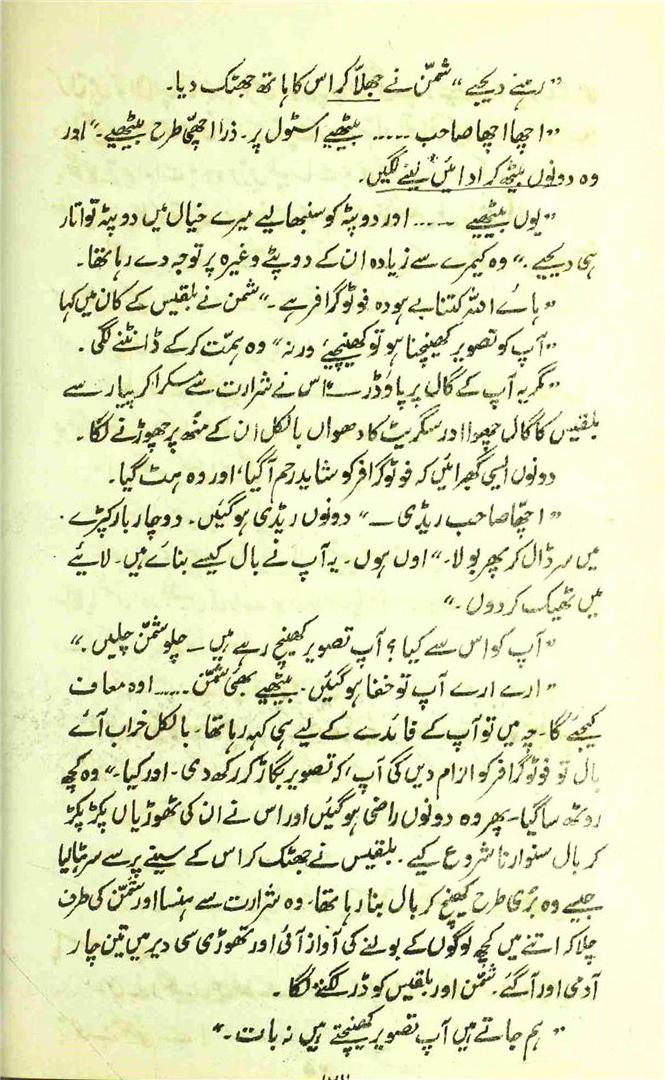 ”رہنے دیجیے“ شمّن نے جھلّا کر اس کا ہاتھ جھٹک دیا۔
”اچھا اچھا صاحب ۔۔۔۔۔ بیٹھیے اسٹول پر۔ ذرا اچھی طرح بیٹھیے۔“ اور
وہ دونوں بیٹھ کر ادائیں لینے لگیں۔
”یوں بیٹھیے ۔۔۔۔ اور دوپٹہ کو سنبھالیے میرے خیال میں دوپٹہ تو اتار
ہی دیجیے۔“ وہ کیمرے سے زیادہ ان کے دوپٹے وغیرہ پر توجہ دے رہا تھا۔
”ہائے اللہ کتنا بے ہودہ فوٹو گرافر ہے۔“ شمن نے بلقیس کے کان میں کہا
”آپ کو تصویر کھینچنا ہو تو کھینچیے ورنہ“ وہ ہمّت کر کے ڈانٹنے لگی۔
”مگر یہ آپ کے گال پر پاؤڈر —“ اس نے شرارت سے مسکرا کر پیار سے
بلقیس کا گال چھوا اور سگریٹ کا دھواں بالکل ان کے منھ پر چھوڑنے لگا۔
دونوں ایسی گھبرائیں کہ فوٹو گرافر کو شاید رحم آ گیا، اور وہ ہٹ گیا۔
”اچھا صاحب ریڈی —“ دونوں ریڈی ہو گئیں۔ دو چار بار کپڑے
میں سر ڈال کر پھر بولا۔ ”اوں ہوں۔ یہ آپ نے بال کیسے بنائے ہیں۔ لائیے
میں ٹھیک کر دوں۔“
”آپ کو اس سے کیا؟ آپ تصویر کھینچ رہے ہیں — چلو شمّن چلیں۔“
”ارے ارے آپ تو خفا ہو گئیں۔ بیٹھیے بھئی شمّن ۔۔۔۔۔ اوہ معاف
کیجیے گا۔ میں تو آپ کے فائدے کے لیے ہی کہہ رہا تھا۔ بالکل خراب آئے
بال تو فوٹو گرافر کو الزام دیں گی آپ، کہ تصویر بگاڑ کر رکھ دی۔ اور کیا۔“ وہ کچھ
روٹھ سا گیا۔ پھر وہ دونوں راضی ہو گئیں اور اس نے ان کی ٹھوڑیاں پکڑ پکڑ
کر بال سنوارنا شروع کیے۔ بلقیس نے جھٹک کر اس کے سینے پر سے سر ہٹا لیا
جیسے وہ بُری طرح کھینچ کر بال بنا رہا تھا۔ وہ شرارت سے ہنسا اور شمّن کی طرف
چلا کہ اتنے میں کچھ لوگوں کے بولنے کی آواز آئی اور تھوڑی سی دیر میں تین چار
آدمی اور آ گئے۔ شمّن اور بلقیس کو ڈر لگنے لگا۔
”ہم جاتے ہیں آپ تصویر کھینچتے ہیں نہ بات۔“